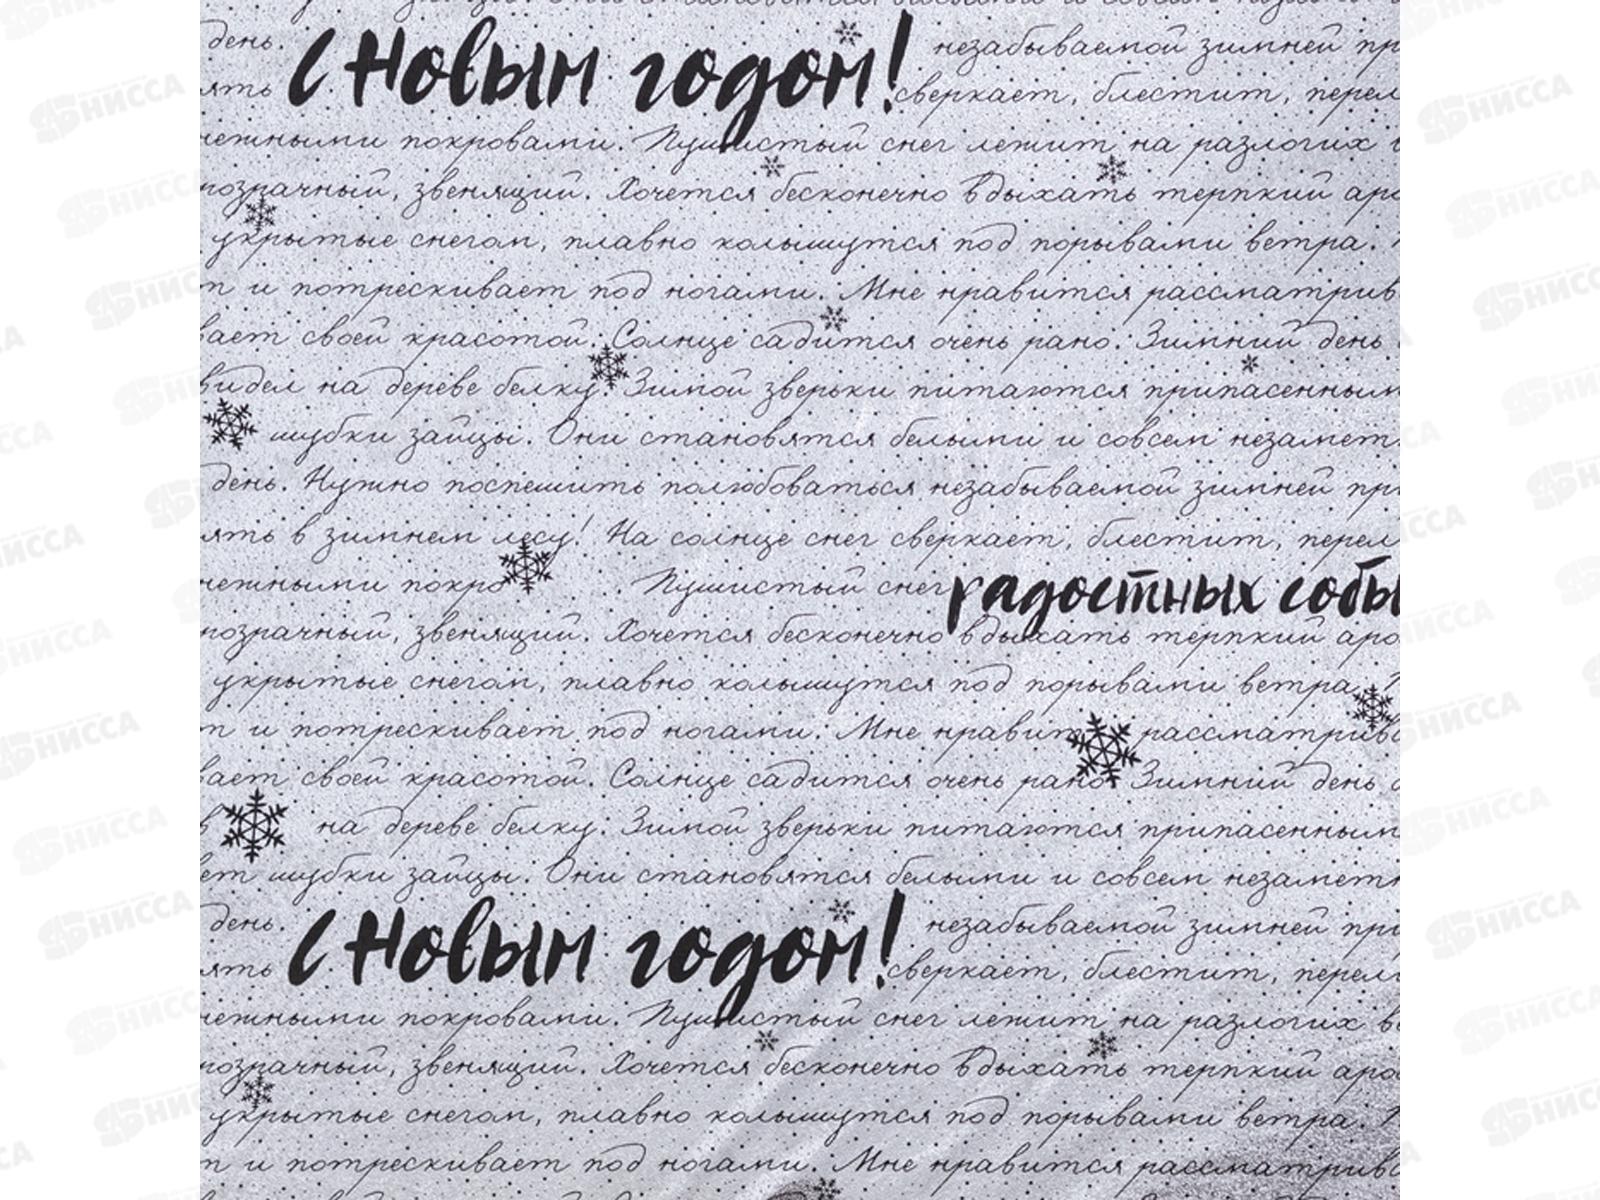 день. С Новым годом! незабываемой зимней
ять сверкает, блестит,
нежными покровами. Пушистый снег лежит на разлогих
звенящий. Хочется бесконечно вдыхать терпкий
укрытые снегом, плавно колышутся под порывами ветра.
и потрескивает под ногами. Мне нравится
своей красотой. Солнце садится очень рано. Зимний день
видел на дереве белку. Зимой зверьки питаются
шубки зайцы. Они становятся белыми и совсем
день. Нужно поспешить полюбоваться незабываемой зимней
ять в зимнем лесу! На солнце снег сверкает, блестит,
нежными покро Пушистый снег радостных собы
звенящий. Хочется бесконечно вдыхать терпкий
укрытые снегом, плавно колышутся под порывами ветра.
и потрескивает под ногами. Мне нравит
своей красотой. Солнце садится очень рано. Зимний день
на дереве белку. Зимой зверьки питаются
шубки зайцы. Они становятся белыми и совсем
день. С Новым годом! незабываемой зимней
ять сверкает, блестит,
нежными покровами. Пушистый снег лежит на разлогих
звенящий. Хочется бесконечно вдыхать терпкий
укрытые снегом, плавно колышутся под порывами ветра.
и потрескивает под ногами. Мне нравится